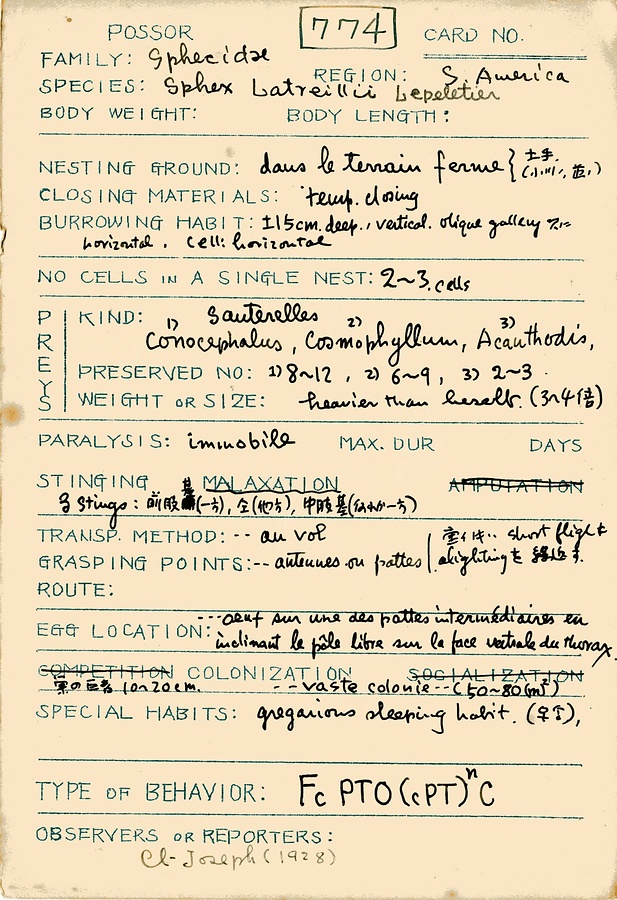 POSSOR 774 CARD NO.
FAMILY: Sphecidae
REGION: S. America
SPECIES: Sphex Latreillii Lepeletier
BODY WEIGHT: BODY LENGTH:
NESTING GROUND: dans le terrain ferme { 土手
CLOSING MATERIALS: temp. closing
BURROWING HABIT: ±15cm. deep., vertical. oblique gallery
horizontal. Cell: horizontal
NO CELLS IN A SINGLE NEST: 2~3. cells
PREYS
KIND: Sauterelles
1) Conocephalus, 2) Cosmophyllum, 3) Acanthodis,
PRESERVED NO: 1) 8~12, 2) 6~9, 3) 2~3.
WEIGHT OR SIZE: heavier than herself. (3~4倍)
PARALYSIS: immobile MAX. DUR DAYS
STINGING MALAXATION AMPUTATION
3 stings: 前肢基(一方), 仝(他方), 中肢基
TRANSP. METHOD: -- au vol short flight
GRASPING POINTS: -- antennes ou pattes alighting を
ROUTE:
EGG LOCATION: ---oeuf sur une des pattes intermédiaires en
inclinant le pôle libre sur la face ventrale du thorax.
COMPETITION COLONIZATION SOCIALIZATION
10~20cm. --vaste colonie--(50~80(m²)
SPECIAL HABITS: gregarious sleeping habit. (♀♂),
TYPE OF BEHAVIOR: Fc PTO(cPT)ⁿC
OBSERVERS OR REPORTERS:
Cl-Joseph (1928)